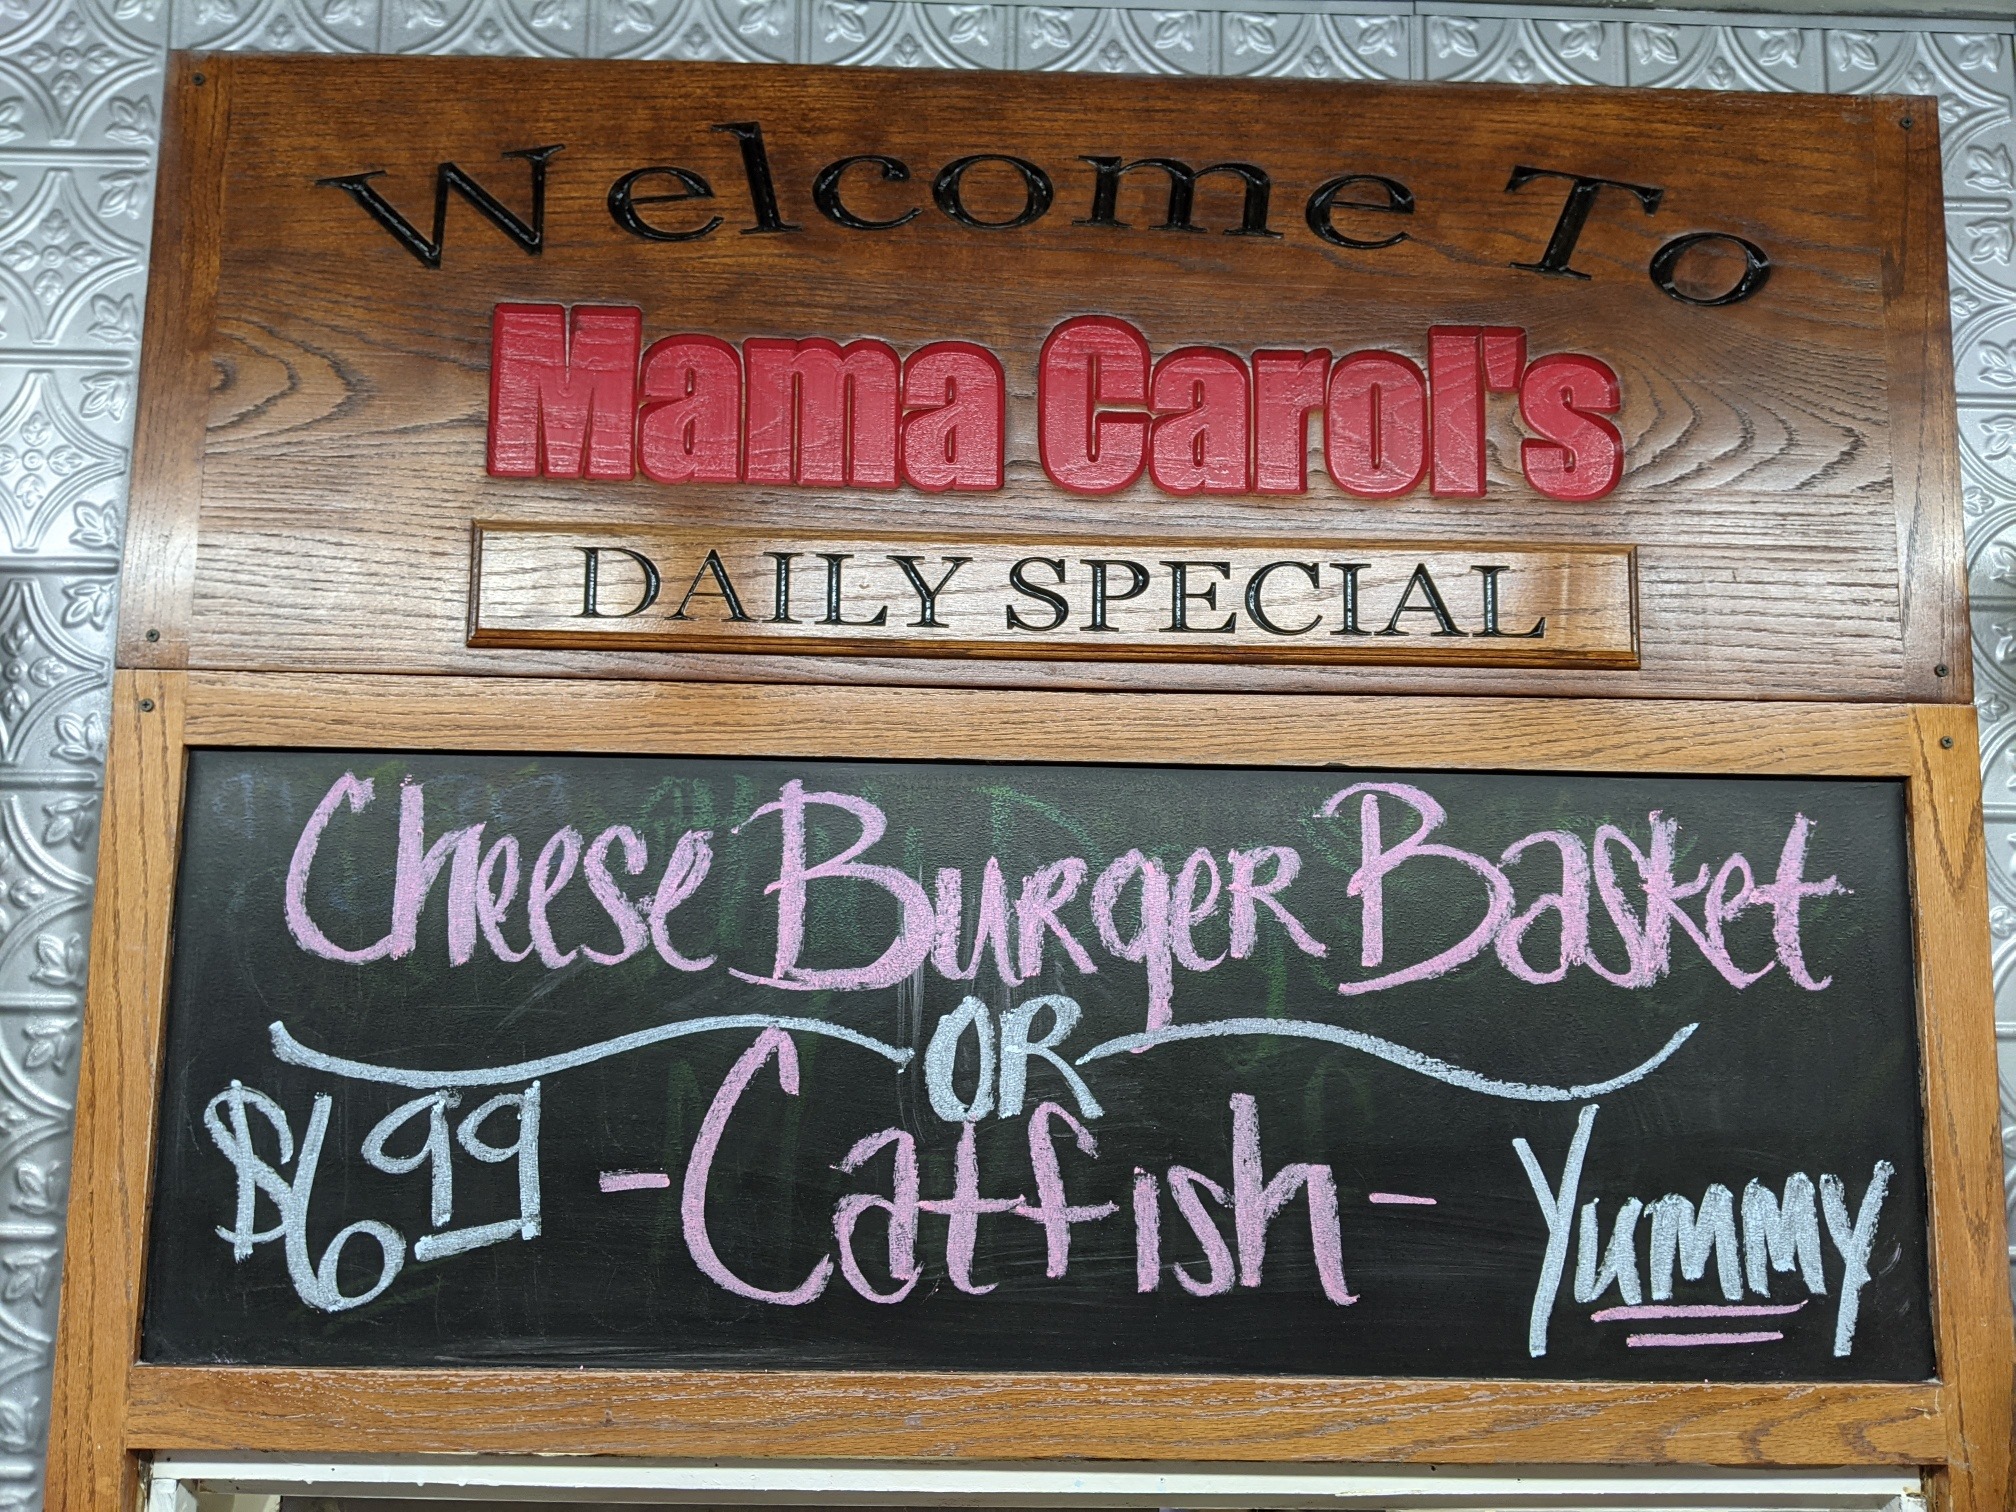 Welcome To
Mama Carol's
DAILY SPECIAL
Cheese Burger Basket
OR
$6.99 -Catfish- Yummy